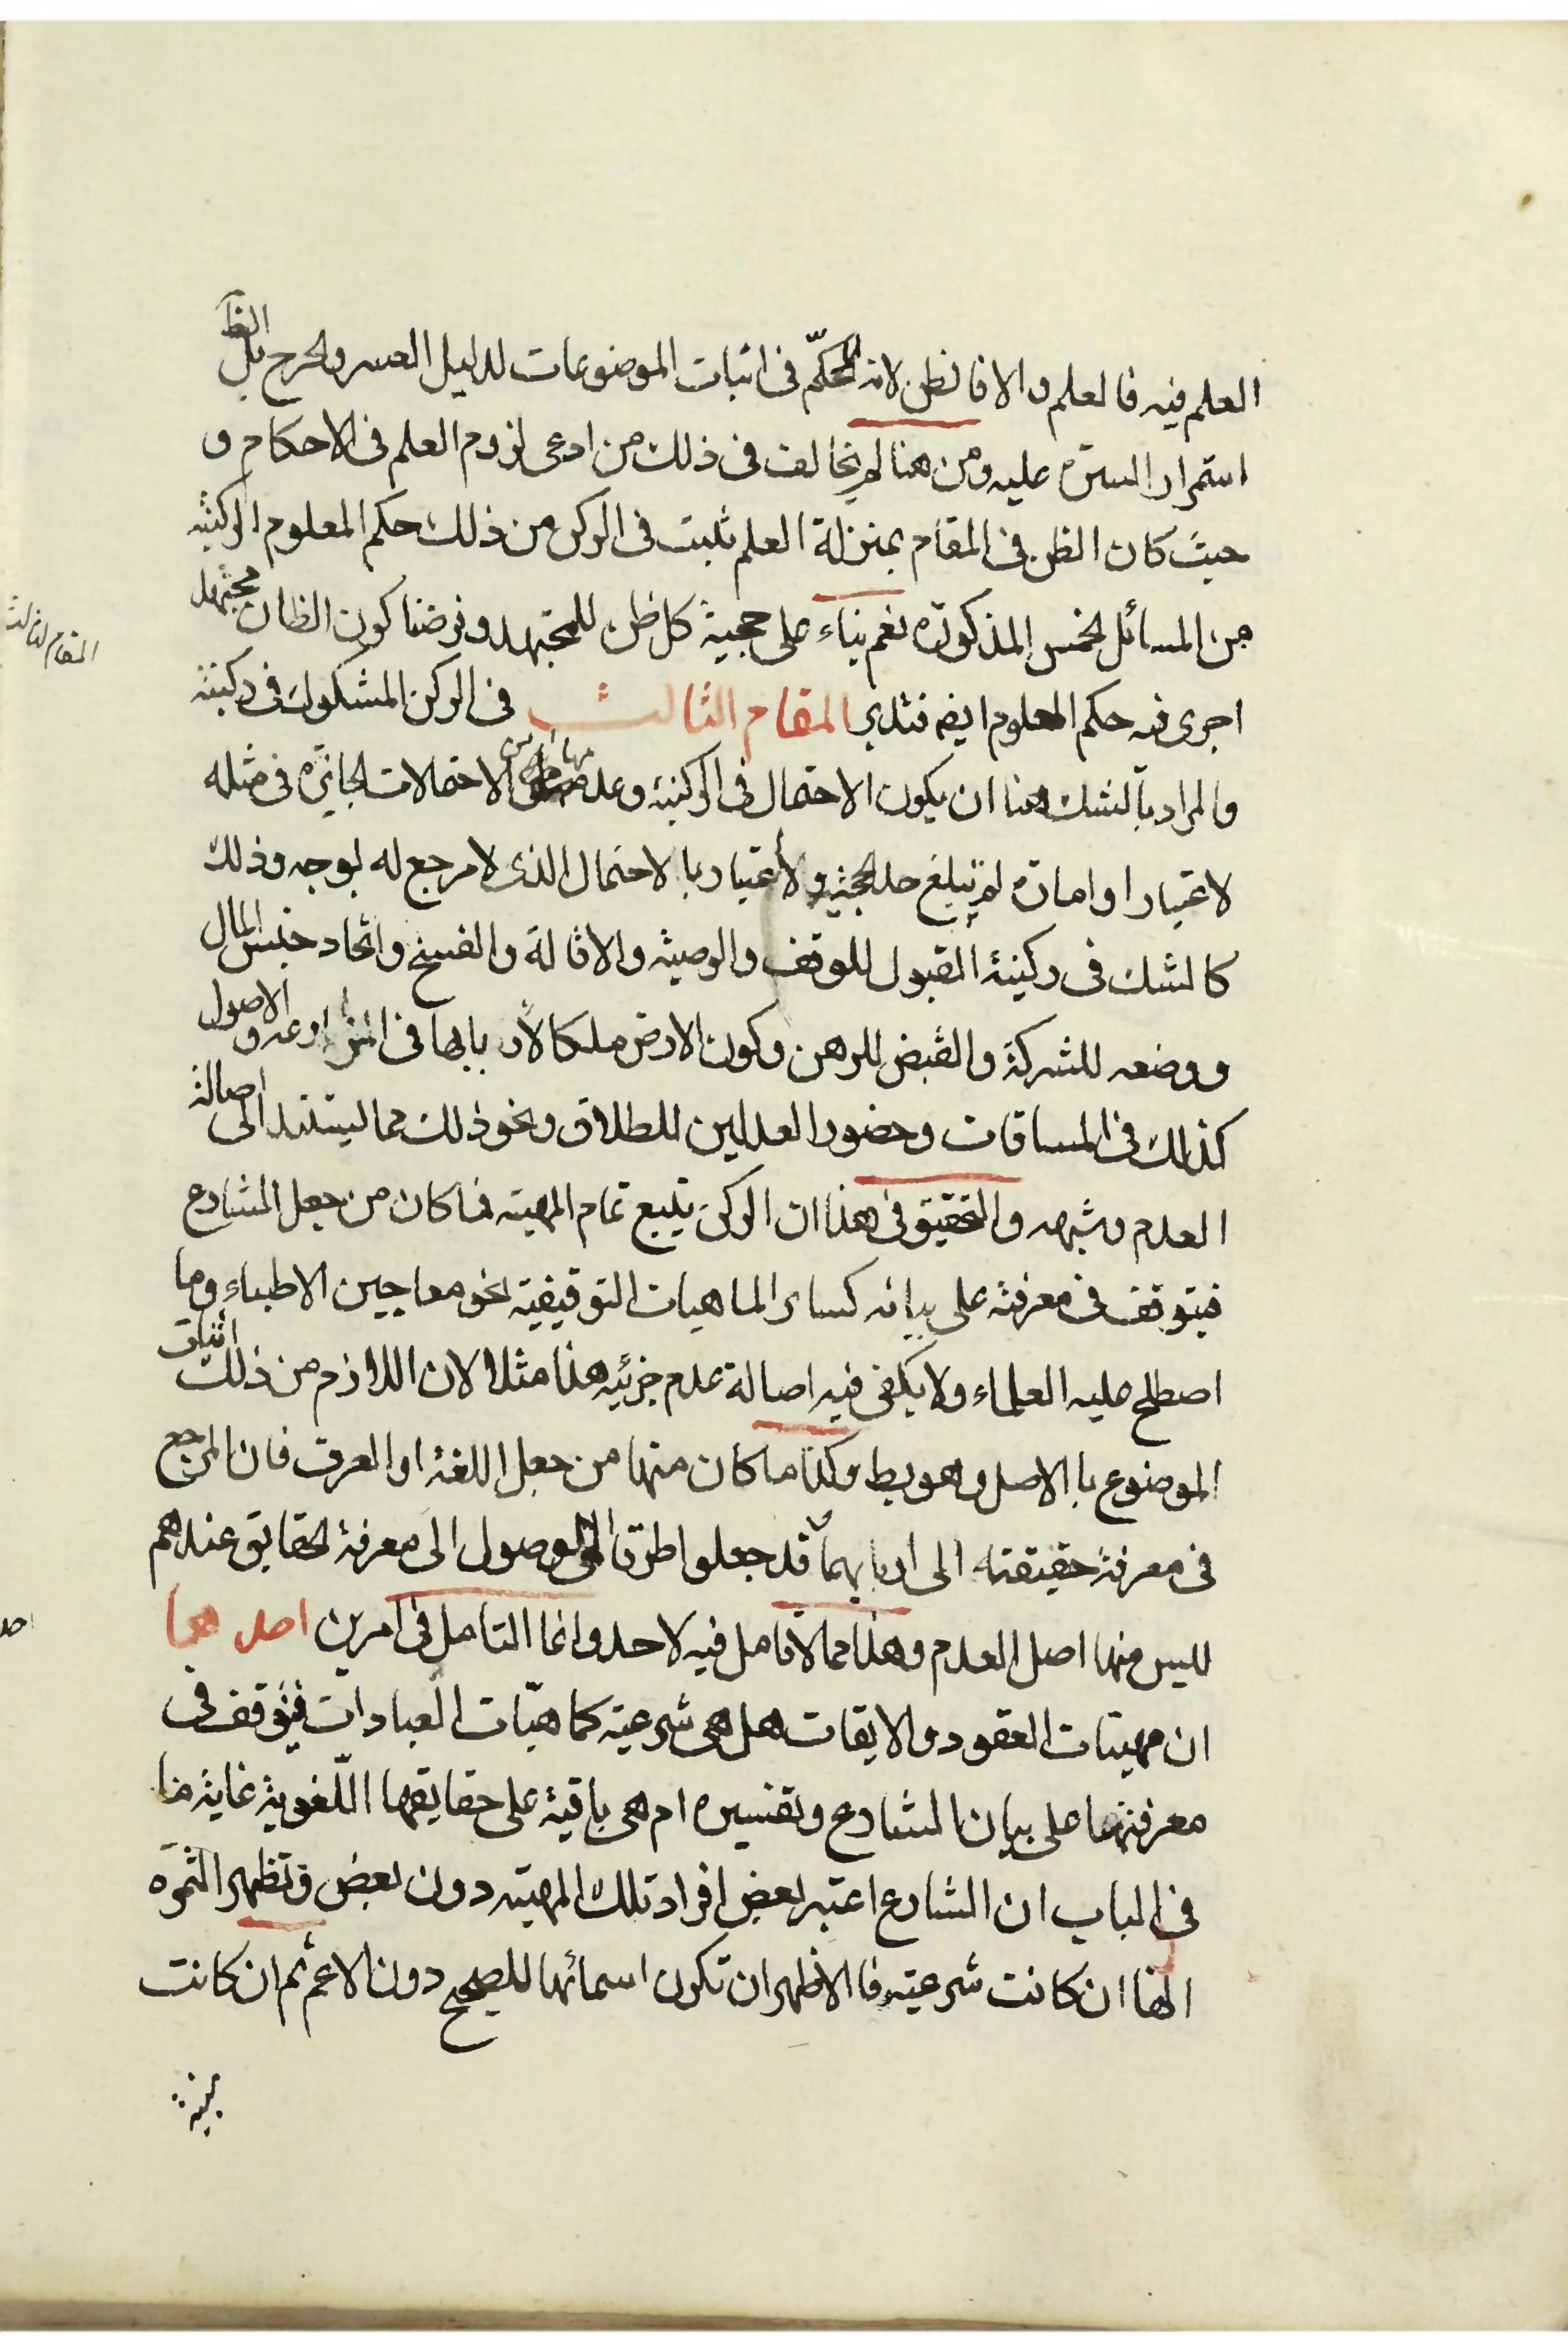 العلم فيه فالعلم والا فالظن لانه المحكّم فى اثبات الموضوعات لدليل العسر والحرج بل الظ
استمرار السيرة عليه ومن هنا لم يخالف فى ذلك من ادعى لزوم العلم فى الاحكام و
حيث كان الظن فى المقام بمنزلة العلم ثبت فى الركن من ذلك حكم المعلوم الركنية
من المسائل الخمس المذكورة نعم بناء على حجية كل ظن للمجتهد وفرضنا كون الظان مجتهد
اجرى فيه حكم المعلوم ايضه فتدبر المقام الثالث فى الركن المشكوك فى ركنيته
والمراد بالشك هنا ان يكون الاحتمال فى الركنية وعدمها من الاحتمالات الجائزة فى مثله
لاعتبار او امارة لم تبلغ حد الحجية ولا اعتبار با لاحتمال الذى لا مرجع له بوجه وذلك
كالشك فى ركنية القبول للوقف والوصية والاقالة والفسخ واتحاد جنس المال
ووضعه للشركة والقبض للرهن وكون الارض ملكا لأربابها فى المزارعه و الاصول
كذلك فى المساقات وحضور العدلين للطلاق ونحو ذلك مما يستند الى اصالة
العدم وشبهه والتحقيق فى هذا ان الركن يتبع تمام المهية فما كان من جعل الشارع
فيتوقف فى معرفته على بيانه كسائر الماهيات التوقيفية نحو معاجين الاطباء وما
اصطلح عليه العلماء ولا يكفى فيه اصالة عدم جزئيه هذا مثلا لان اللازم من ذلك اثبات
الموضوع با الاصل وهو بط وكذا ما كان منها من جعل اللغة او العرف فان المرجع
فى معرفة حقيقته الى اربابهما قد جعلوا طرقا للوصول الى معرفة الحقايق عندهم
ليس منها اصل العدم وهذا مما لا تامل فيه لاحد وانما التامل فى امرين احدهما
ان مهيتات العقود والايقات هل هى شرعية كماهيّات العبادات فيتوقف فى
معرفتها على بيان الشارع وتفسيره ام هى باقية على حقايقها اللّغوية غاية ما
فى الباب ان الشارع اعتبر بعض افراد تلك المهية دون بعض وتظهر الثمرة
انها ان كانت شرعية فا الاظهر ان تكون اسمائها للصحيح دون الاعم ثم ان كانت
المقام الثالث